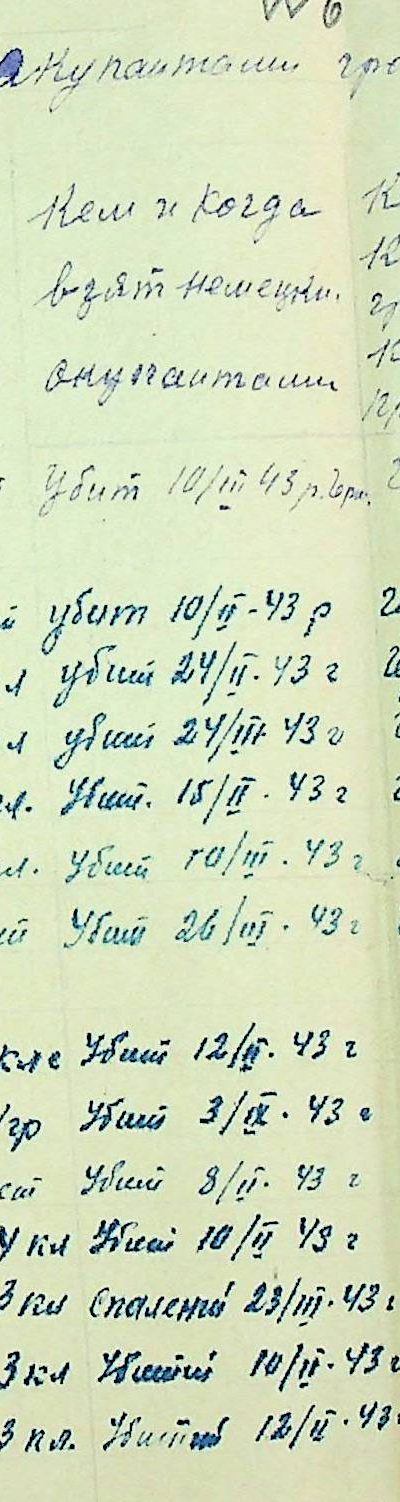 № 6
акупантами гро
Кем и когда
взят немецки.
окупантами
Убит 10/III 43 р.
й убит 10/II-43 р
л убит 24/II. 43 г
л убит 24/III 43 г
кл. Убит. 15/II. 43 г
кл. Убит 10/III. 43 г
ий Убит 26/III. 43 г
кле Убит 12/II. 43 г
/гр Убит 3/IX. 43 г
ст Убит 8/II. 43 г
4 кл Убит 10/II 43 г
3 кл спалений 23/III. 43 г
3 кл Убитий 10/II. 43 г
3 кл. Убитий 12/II. 43